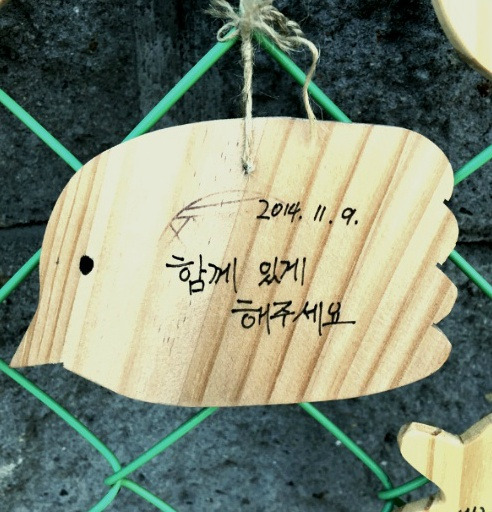 2014. 11. 9.
함께 있게
해주세요